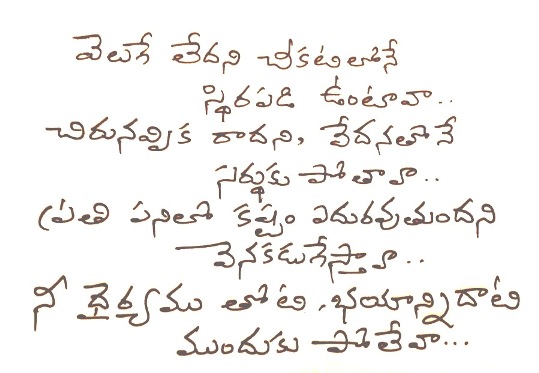 వెలుగే లేదని చీకటిలోనే
స్థిరపడి ఉంటావా..
చిరునవ్విక రాదని, వేదనతోనే
సర్థుకు పోతావా..
ప్రతి పనిలో కష్టం ఎదురవుతుందని
వెనకడుగేస్తావా..
నీ ధైర్యము తోటి, భయాన్ని దాటి
ముందుకు పోలేవా...